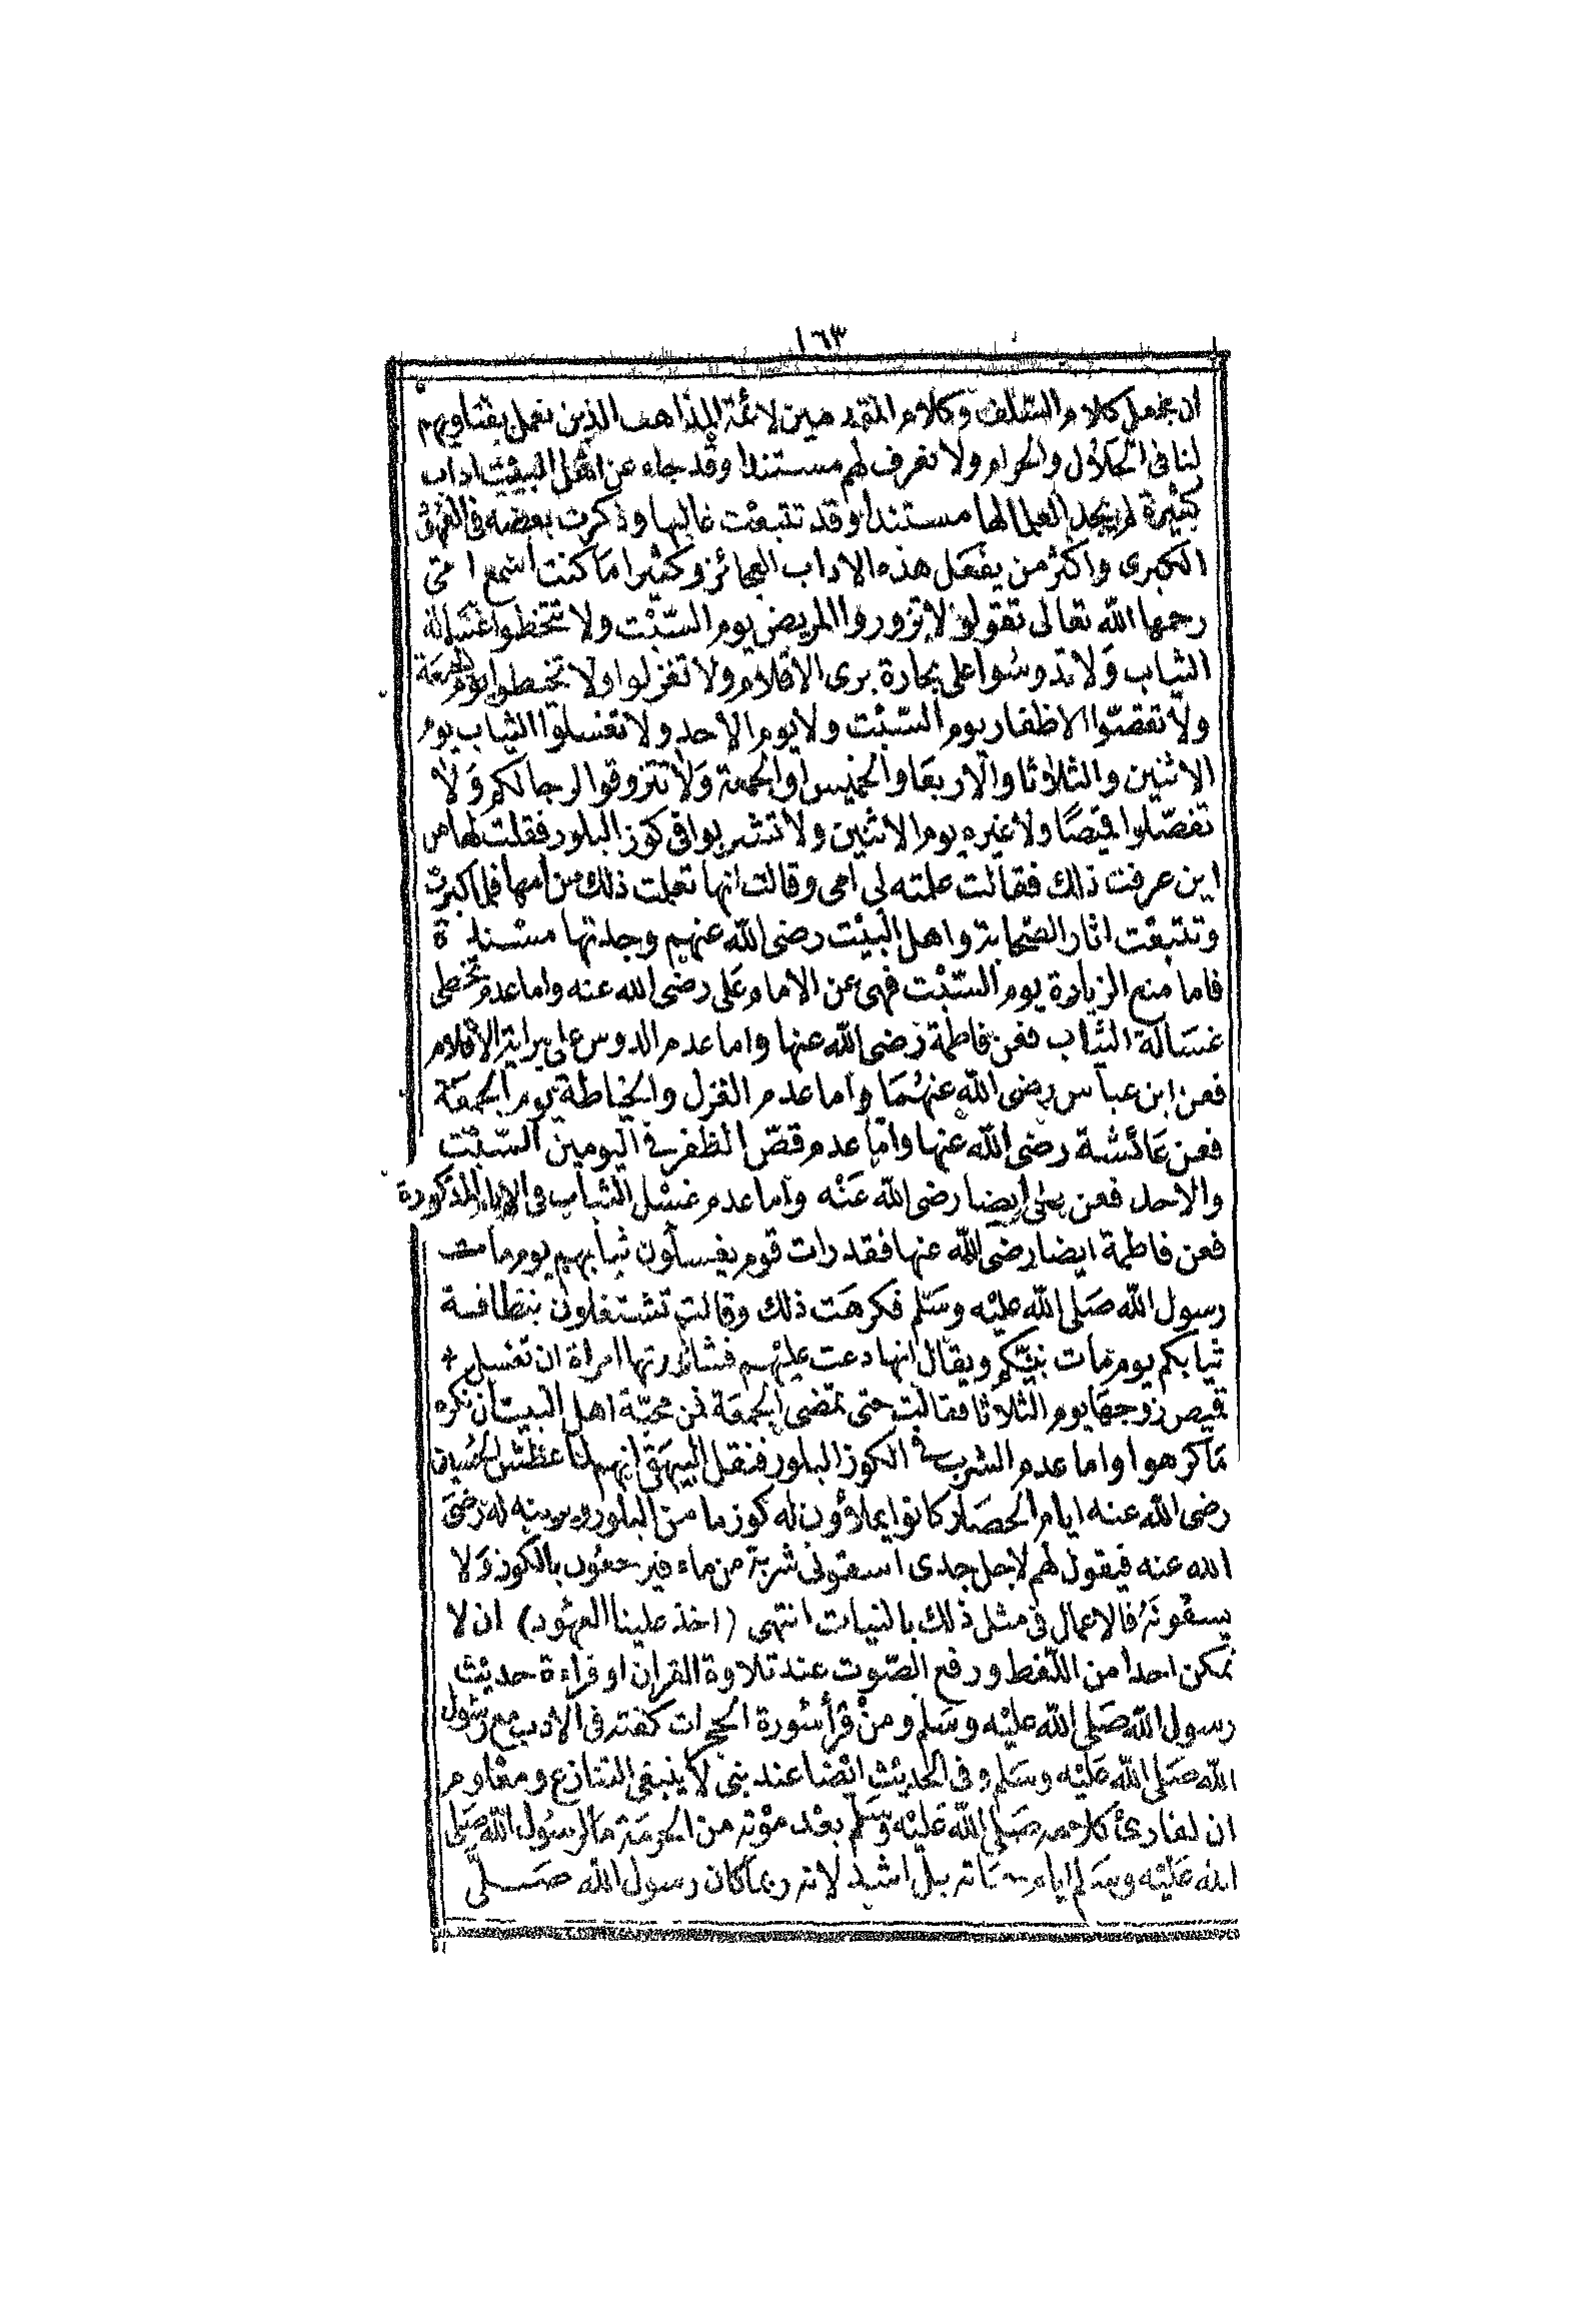 ١٦٣
ان نجعل كلام السّلف وكلام المتقدمين لائمة المذاهب الذين نعمل بفتاويهم
لنا فى الحلال والحرام ولا نعرف لهم مستندا وقد جاء عن اهل البيت اداب
كثيرة لم يجد العلما لها مستندا وقد تتبعت غالبها وذكرت بعضه فى العهود
الكبرى واكثر من يفعل هذه الاداب العجائز وكثيرا ما كنت اسمع امى
رحمها الله تعالى تقول لا تزوروا المريض يوم السّبْت ولا تتخطوا غسالة
الثياب وَلا تدوسُوا على بحارة برى الاقلام ولا تغزلوا ولا تخيطوا يوم الجمعة
ولا تقصّوا الاظفار يوم السّبْت ولا يوم الاحد ولا تغسلوا الثياب يوم
الاثنين والثلاثا والاربعا والخميس او الجمعة وَلا تتزوقوا لرجالكم وَلا
تفصّلوا قميصًا ولا غيره يوم الاثنين ولا تشربوا فى كوز البلور فقلت لها من
اين عرفت ذلك فقالت علمته لى امى وقالت انها تعلمت ذلك من امها فلما كبرت
وتتبعْت اثار الصحابة واهل البيْت رضى الله عنهم وجدتها مسْندة
فاما منع الزيارة يوم السّبْت فهى عن الامام عَلى رضى الله عنه واما عدم تخطى
غسَالة الثياب فعن فاطمة رَضى الله عنها واما عدم الدوس على براية الاقلام
فعن ابن عباس رضى الله عنهُمَا واما عدم الغزل والخياطة يوم الجمعَة
فعن عَائشة رضى الله عنها وامّا عدم قصّ الظفر فى اليومين السّبْت
والاحد فعن على ايضا رضى الله عَنْه واما عدم غسْل الثياب فى الايام المذكورة
فعن فاطمة ايضا رضى الله عنها فقد رات قوم يغسلون ثيابهم يوم مات
رسول الله صَلى الله عليْه وسَلم فكرهَت ذلك وقالت تشتغلون بنظافة
ثيابكم يوم مَات نبيّكم ويقال انها دعت عليْهم فشاورتها امراة ان تغسل
قميص زوجهَا يوم الثلاثا فقالت حتى تمضى الجمعَة فمن محبّة اهل البيت ان نكره
مَا كرهوا واما عدم الشرب فى الكوز البلور فنقل البيهَقى انهم لما عطش الحُسين
رضى الله عنه ايام الحصَار كانوا يملاؤن له كوز ما من البلور ويرونه له رَضىَ
الله عنه فيقول لهم لاجل جدى اسقونى شربة من ماء فيرجعُون بالكوز وَلا
يسقُونَهُ فالاعمال فى مثل ذلك بالنيات انتهى (اخذ علينا العهُود) ان لا
نمكن احدا من اللّغط ورفع الصّوت عند تلاوة القران او قراءة حديث
رسول الله صَلى الله عليْه وسَلم ومنْ قرأ سُورة الحجرات كفته فى الادب مع رسُول
الله صَلى الله عَليْه وسَلم وفى الحديث ايْضا عند نبى لا ينبغى التنازع ومعْلوم
ان لقارئ كلامه صَلى الله عَليْه وسَلم بعْد مَوْته من الحرمَة مَا لرسُول الله صَلى
الله عَليْه وسَلم ايام حيَاته بل اشد لانه ربما كان رسول الله صَلى